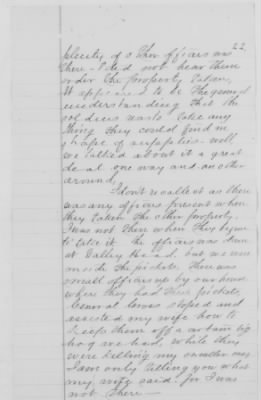 22
plenty of other officers was
there - I did not hear them
order the property taken,
It appeared to be the general
understanding that the
soldiers was to take any
thing they could find in
shape of supplies - well
we talked about it a great
deal one way and another
around.
I don't recollect as there
was any officers present when
they taken the other property.
I was not there when they begun
to take it. the officers was down
at Valley Head. but we were
inside the pickets. There was
small officers up by our house
where they had their pickets.
General stoped and
assisted my wife how to
keep them off a certain big
hog we had, while they
were killing my smaller ones
I am only telling you what
my wife said. for I was
not there -